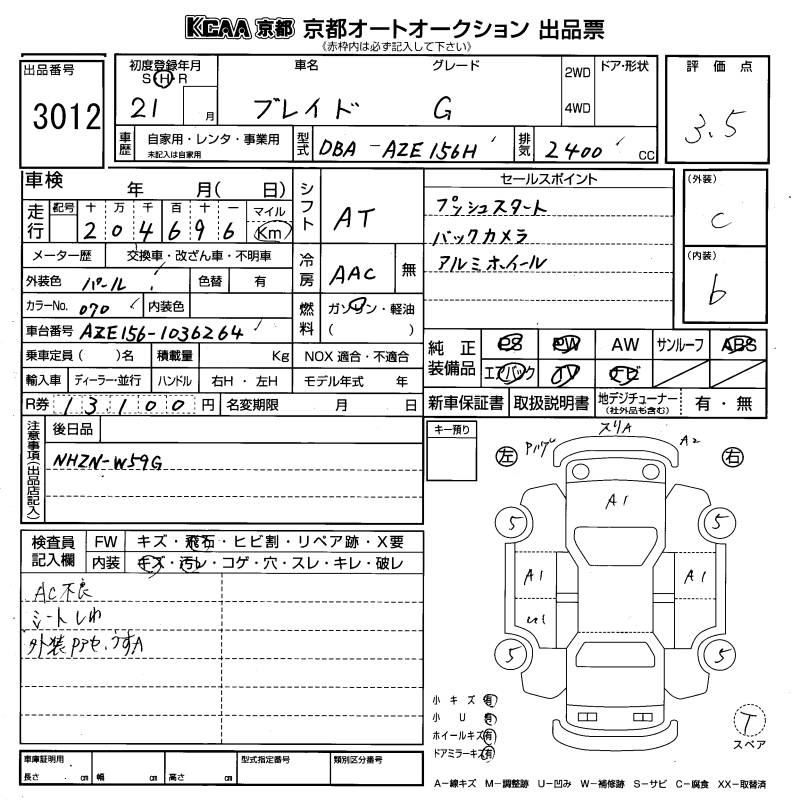 KCAA 京都 京都オートオークション 出品票
《赤枠内は必ず記入して下さい》
出品番号
3012
初度登録年月
S・H・R
21 月
車名
ブレイド
グレード
G
2WD
4WD
ドア・形状
評価点
3.5
車歴
自家用・レンタ・事業用
未記入は自家用
型式
DBA-AZE156H
排気
2400 cc
車検 年 月( 日)
走行
記号 十 万 千 百 十 一 マイル
2 0 4 6 9 6 Km
メーター歴 交換車・改ざん車・不明車
外装色 パール 色替 有
カラーNo. 070 内装色
車台番号 AZE156-1036264
乗車定員( )名 積載量 Kg
輸入車 ディーラー・並行 ハンドル 右H・左H
R券 13,100 円 名変期限 月 日
シフト
AT
冷房
AAC 無
燃料
ガソリン・軽油
( )
NOX 適合・不適合
モデル年式 年
セールスポイント
プッシュスタート
バックカメラ
アルミホイール
(外装)
C
(内装)
b
純正装備品
PS PW AW サンルーフ ABS
エアバック TV ナビ
新車保証書 取扱説明書 地デジチューナー(社外品も含む) 有・無
注意事項(出品店記入)
後日品
NHZN-W59G
キー預り
検査員記入欄
FW キズ・飛石・ヒビ割・リペア跡・X要
内装 キズ・汚レ・コゲ・穴・スレ・キレ・破レ
AC不良
シートしわ
外装PアセうすA
スリA
A2
左
右
A1
5
5
A1
A1
U1
5
5
小キズ 有
小U 有
ホイールキズ 有
ドアミラーキズ 有
T
スペア
車庫証明用
長さ . cm 幅 cm 高さ cm
型式指定番号
類別区分番号
A-線キズ M-調整跡 U-凹み W-補修跡 S-サビ C-腐食 XX-取替済